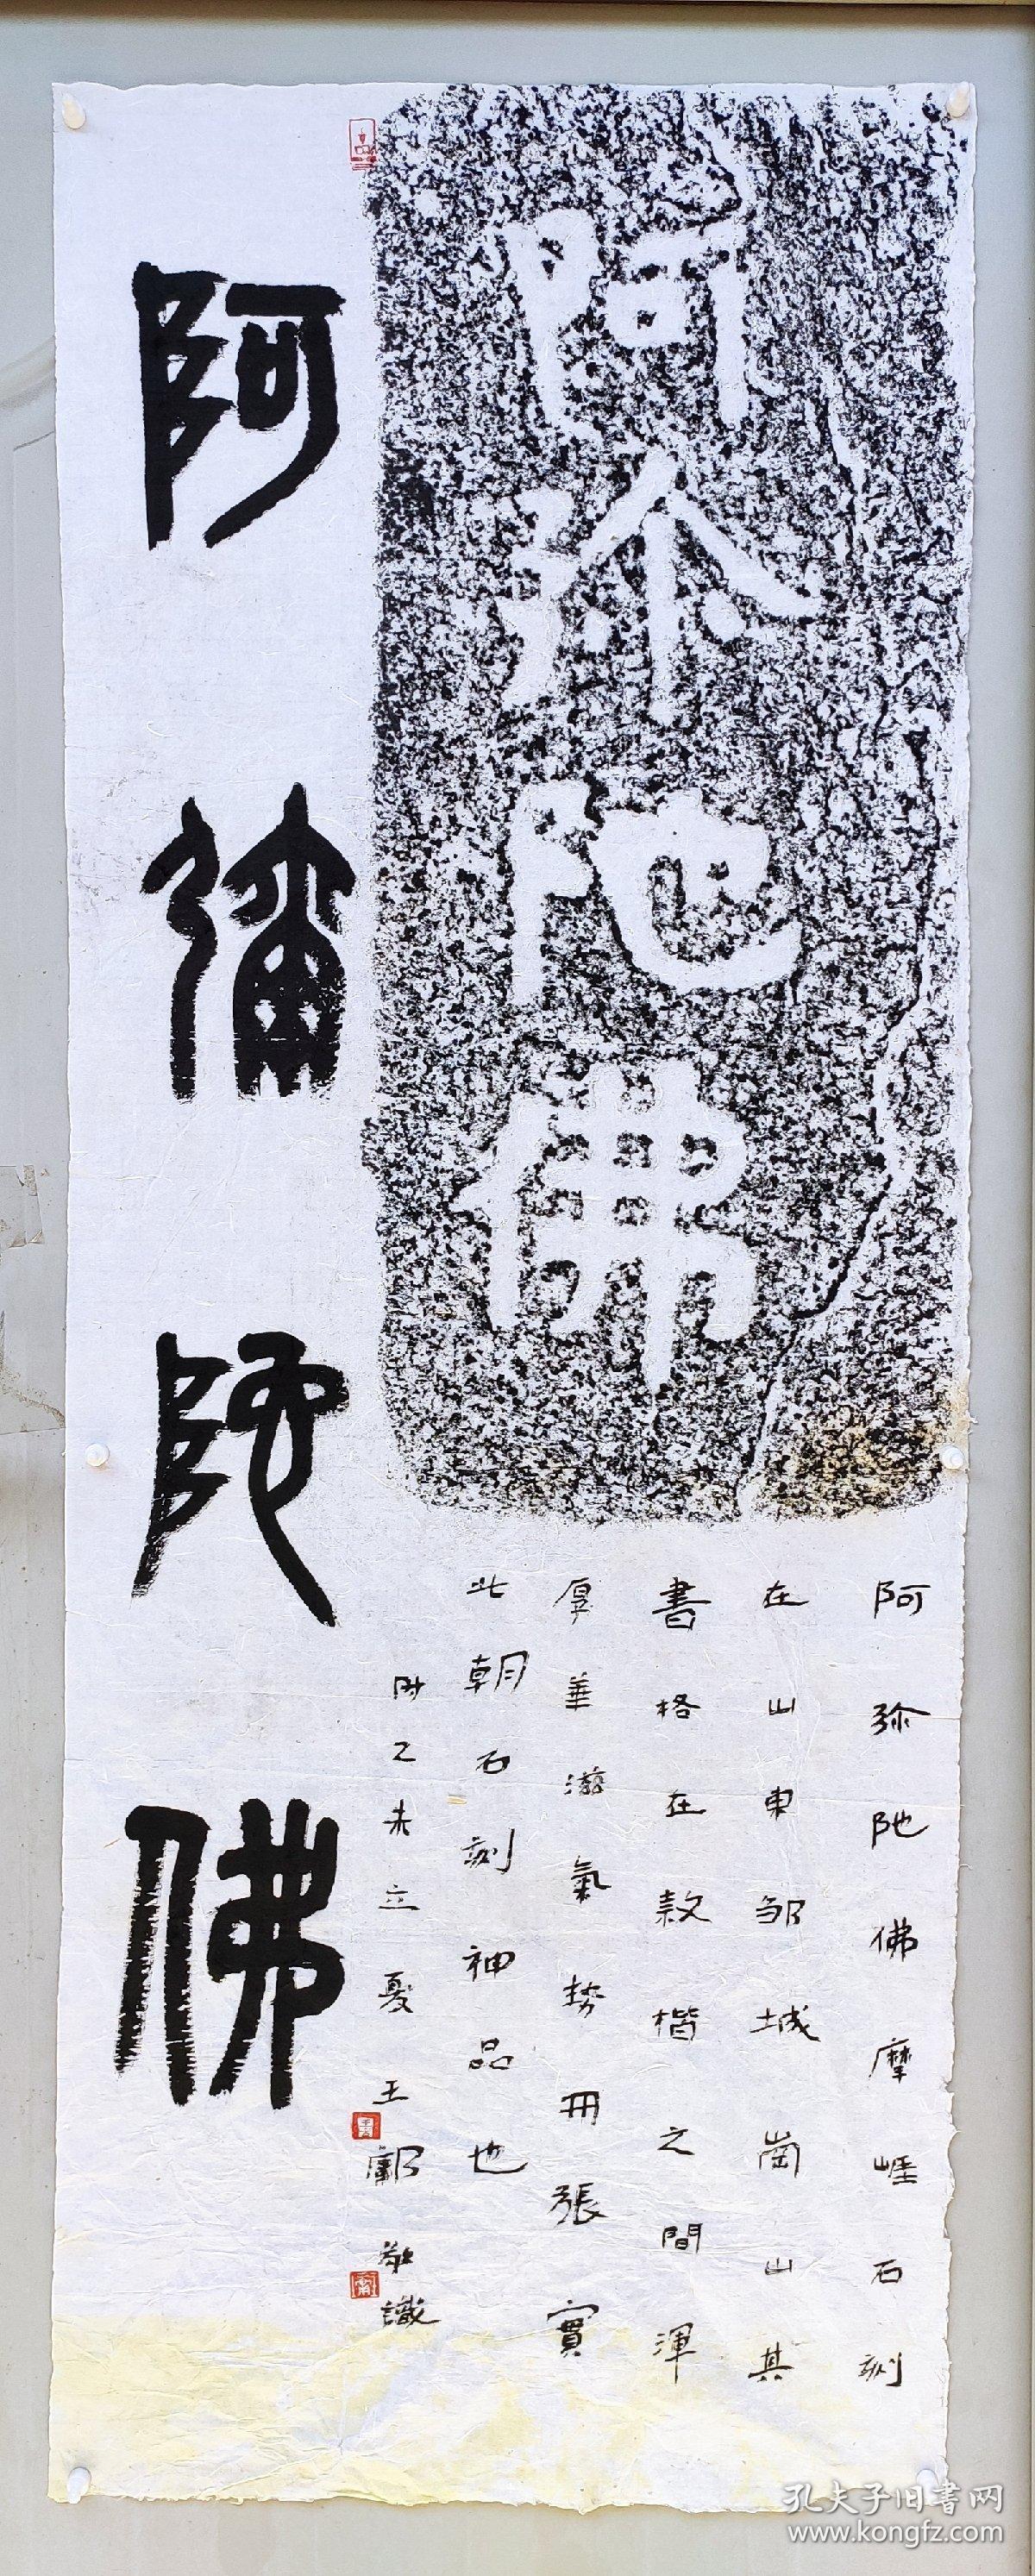 阿弥陀佛
阿弥陁佛摩崖石刻
在山东邹城崗山其
書格在款楷之間渾
厚華滋氣势开張實
此朝石刻神品也
时乙未立夏王
敬識
阿彌陀佛
孔夫子旧書网
www.kongfz.com